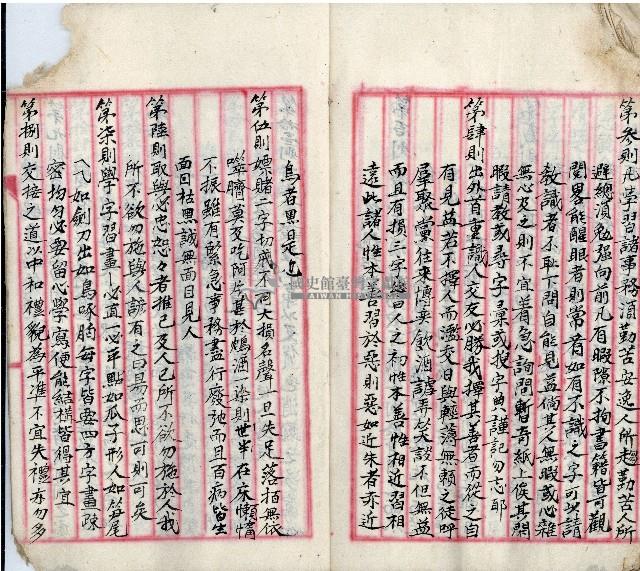 第叁則凡學習諸事務須勤苦安逸人所趨勤苦人所
避總須勉强向前凡有暇隙不拘書籍皆可觀
閱畧能醒眼者則常看如有不識之字可以請
教識者不恥下問自能見益倘其人無暇或心雜
無心及之則不宜着急詢問暫寄紙上俟其閑
暇請教或尋字彙或搜字典謹記勿忘耶
第肆則出外首重識人交友必勝我擇其善者而從之自
有見益若不擇人而濫交日與輕蕩無賴之徒呼
羣聚黨往來博奕飲酒謔弄笑談不但無益
而且有損三字經曰人之初性本善性相近習相
遠此諸人性本善習於惡則惡如近朱者赤近
烏者黑是也
第伍則嫖賭二字切戒不可大損名聲一旦失足落拓無依
噬臍莫及吃阿片甚於鴆酒一染則世半在床懶惰
不振雖有緊急事務盡行廢弛而且百病皆生
面目枯黑誠無面目見人
第陸則取與必忠恕々者推己及人己所不欲勿施於人我
所不欲勿施與人諺有之曰易而思可則可矣
第柒則學字習畫一必直一必平點如瓜子形人如笋尾
乀如劍刀出如鳥啄胸每字皆要四方字畫疎
密均勻必要留心學寫便能結構皆得其宜
第捌則交接之道以中和禮貌為平準不宜失禮亦勿多
國史館臺灣文獻館
TAIWAN HISTORICA